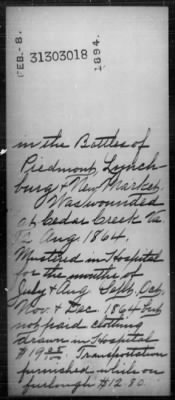 FEB.-8.
31303018
1894.
in the Battles of
Piedmont, Lynch-
burg & New Market.
Was wounded
at Cedar Creek Va
12 Aug. 1864.
Mustered in Hospital
for the months of
July & Aug Sept. Oct.
Nov. & Dec. 1864 but
not paid clothing
drawn in Hospital
$19 Transportation
furnished while on
furlough $12 80.